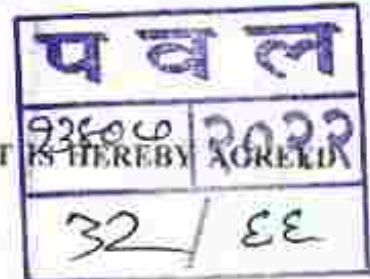 प व ल
२०२२
T IS HEREBY AGREED
32 / ६६